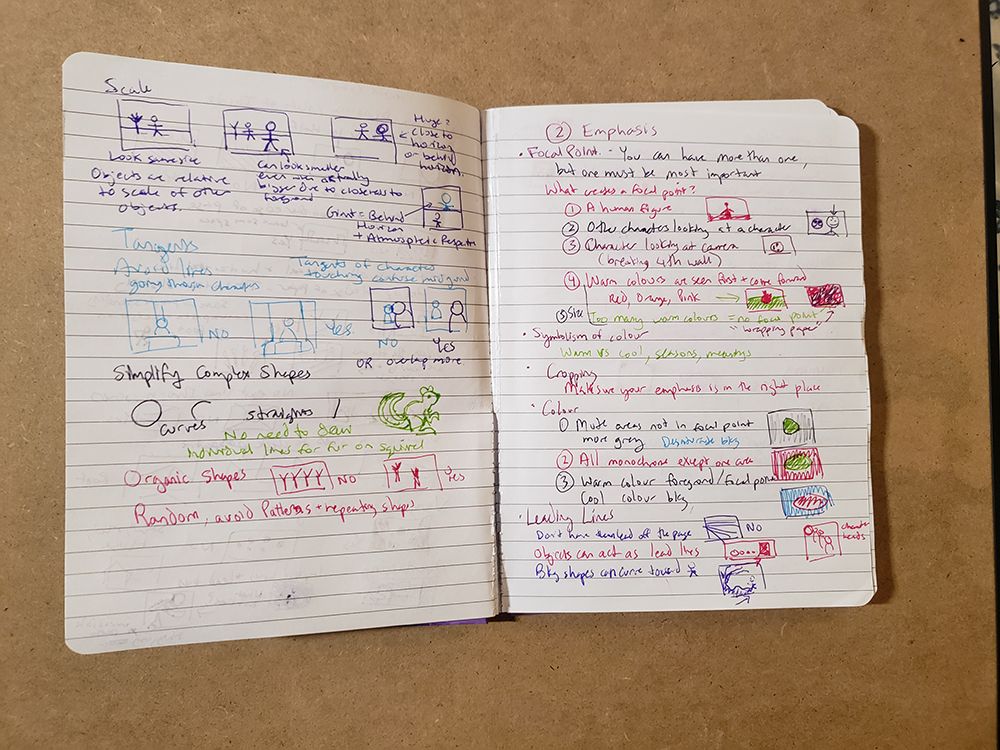 Scale
Look same size
Can look smaller
even over actually
bigger due to closeness to
foreground
Huge?
close to
horizon
or behind
horizon.
Objects are relative
to scale of other
objects.
Giant = Behind
Horizon
+ Atmospheric Perspective
Tangents
Avoid lines
going through characters
Tangents of characters
touching confuse mid ground
NO
Yes
NO
Yes
OR overlap more
Simplify Complex Shapes
curves
straights
No need to draw
individual lines for fur on squirrel
Organic Shapes
NO
Yes
Random, avoid Patterns + repeating shapes
② Emphasis
• Focal Point. - You can have more than one,
but one must be most important
What creates a focal point?
① A human figure
② Other characters looking at a character
③ Character looking at camera
(breaking 4th wall)
④ Warm colours are seen first + come forward
Red, Orange, Pink
⑤ Size
Too many warm colours = no focal point
"wrapping paper"
• Symbolism of colour
Warm vs cool, seasons, meanings
• Cropping
Make sure your emphasis is in the right place
• Colour
① Mute areas not in focal point
more grey Desaturate bkg
② All monochrome except one area
③ Warm colour foreground/focal point
Cool colour bkg
• Leading Lines
Don't have them lead off the page
NO
Objects can act as lead lines
character
heads
Bkg shapes can curve toward